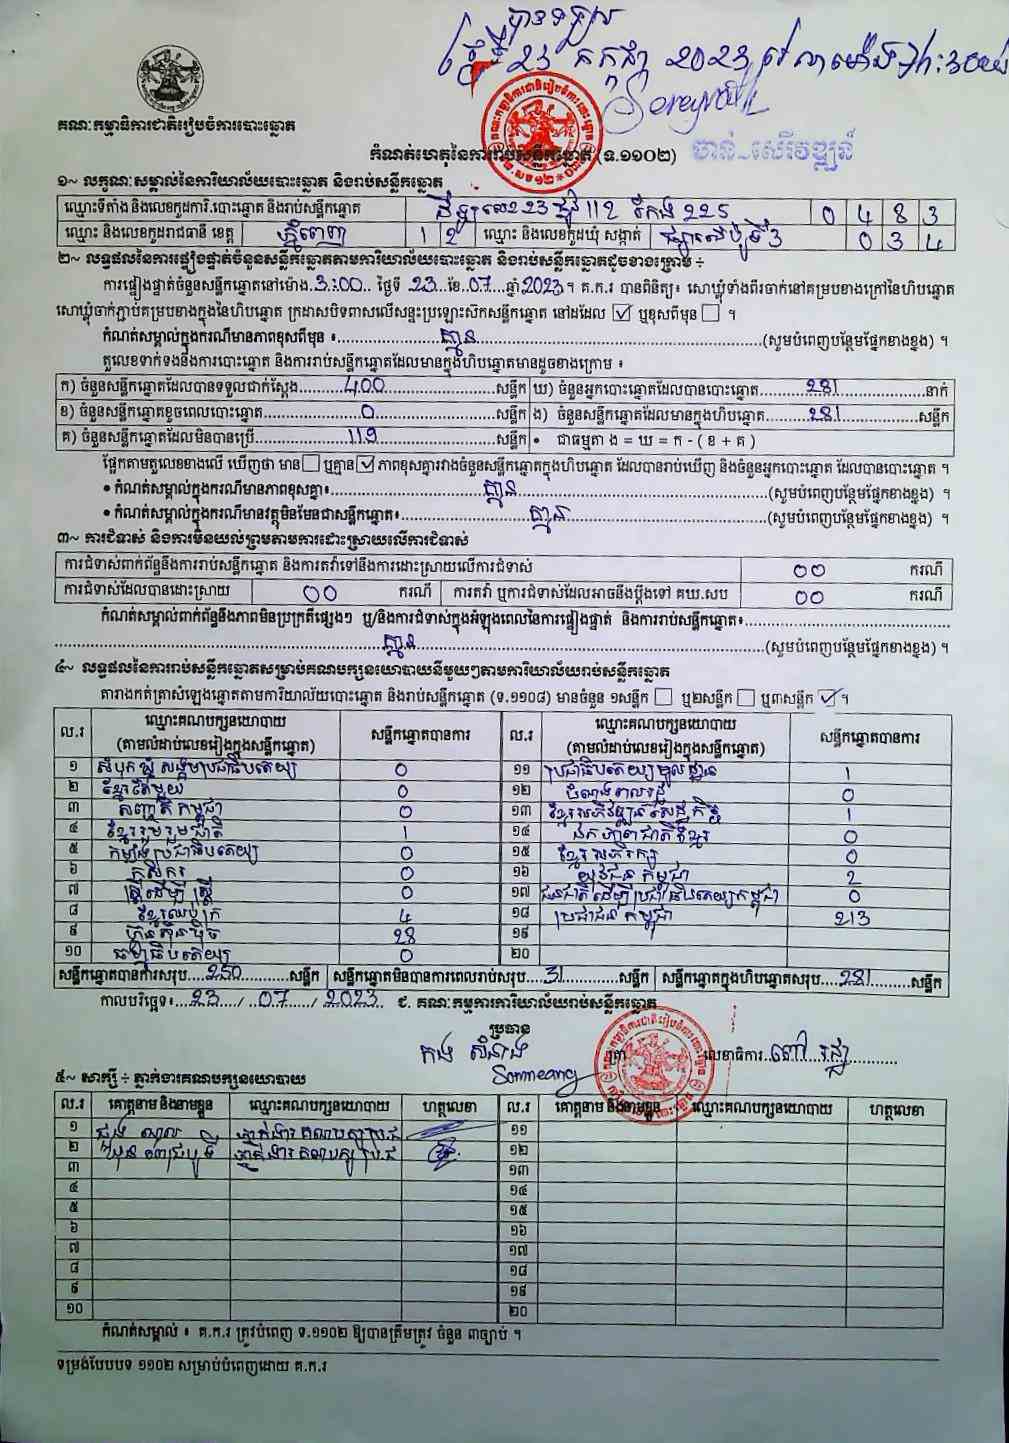 បានទទួល
ថ្ងៃទី 23 កក្កដា 2023 វេលាម៉ោង
គណៈកម្មាធិការជាតិរៀបចំការបោះឆ្នោត
កំណត់ហេតុនៃការរាប់សន្លឹកឆ្នោត (ទ.១១០២)
ចាន់ សេរីវឌ្ឍន៍
១~ លក្ខណៈសម្គាល់នៃការិយាល័យបោះឆ្នោត និងរាប់សន្លឹកឆ្នោត
ឈ្មោះទីតាំង និងលេខកូដការិ.បោះឆ្នោត និងរាប់សន្លឹកឆ្នោត 0 4 8 3
ឈ្មោះ និងលេខកូដរាជធានី ខេត្ត ភ្នំពេញ 1 2 ឈ្មោះ និងលេខកូដឃុំ សង្កាត់ ផ្សារដើមថ្កូវ 0 3 4
២~ លទ្ធផលនៃការផ្ទៀងផ្ទាត់ចំនួនសន្លឹកឆ្នោតតាមការិយាល័យបោះឆ្នោត និងរាប់សន្លឹកឆ្នោតដូចខាងក្រោម ÷
ការផ្ទៀងផ្ទាត់ចំនួនសន្លឹកឆ្នោតនៅម៉ោង 3:00 ថ្ងៃទី 23 ខែ 07 ឆ្នាំ 2023។ គ.ក.រ បានពិនិត្យ៖ សោឃ្លុំទាំងពីរចាក់នៅគម្របខាងក្រៅនៃហិបឆ្នោត
សោឃ្លុំចាក់ភ្ជាប់គម្របខាងក្នុងនៃហិបឆ្នោត ក្រដាសបិទពាសលើសន្ទះប្រឡោះស៊កសន្លឹកឆ្នោត នៅដដែល ☑ ឬខុសពីមុន ☐ ។
កំណត់សម្គាល់ក្នុងករណីមានភាពខុសពីមុន ៖ គ្មាន (សូមបំពេញបន្ថែមផ្នែកខាងខ្នង) ។
តួលេខទាក់ទងនឹងការបោះឆ្នោត និងការរាប់សន្លឹកឆ្នោតដែលមានក្នុងហិបឆ្នោតមានដូចខាងក្រោម ៖
ក) ចំនួនសន្លឹកឆ្នោតដែលបានទទួលជាក់ស្តែង 400 សន្លឹក ឃ) ចំនួនអ្នកបោះឆ្នោតដែលបានបោះឆ្នោត 281 នាក់
ខ) ចំនួនសន្លឹកឆ្នោតខូចពេលបោះឆ្នោត 0 សន្លឹក ង) ចំនួនសន្លឹកឆ្នោតដែលមានក្នុងហិបឆ្នោត 281 សន្លឹក
គ) ចំនួនសន្លឹកឆ្នោតដែលមិនបានប្រើ 119 សន្លឹក • ជាធម្មតា ង = ឃ = ក - ( ខ + គ )
ផ្អែកតាមតួលេខខាងលើ ឃើញថា មាន ☐ ឬគ្មាន ☑ ភាពខុសគ្នារវាងចំនួនសន្លឹកឆ្នោតក្នុងហិបឆ្នោត ដែលបានរាប់ឃើញ និងចំនួនអ្នកបោះឆ្នោត ដែលបានបោះឆ្នោត ។
• កំណត់សម្គាល់ក្នុងករណីមានភាពខុសគ្នា៖ គ្មាន (សូមបំពេញបន្ថែមផ្នែកខាងខ្នង) ។
• កំណត់សម្គាល់ក្នុងករណីមានវត្ថុមិនមែនជាសន្លឹកឆ្នោត៖ គ្មាន (សូមបំពេញបន្ថែមផ្នែកខាងខ្នង) ។
៣~ ការជំទាស់ និងការមិនយល់ព្រមតាមការដោះស្រាយលើការជំទាស់
ការជំទាស់ពាក់ព័ន្ធនឹងការរាប់សន្លឹកឆ្នោត និងការតវ៉ាទៅនឹងការដោះស្រាយលើការជំទាស់ 00 ករណី
ការជំទាស់ដែលបានដោះស្រាយ 00 ករណី ការតវ៉ា ឬការជំទាស់ដែលអាចនឹងប្តឹងទៅ គឃ.សប 00 ករណី
កំណត់សម្គាល់ពាក់ព័ន្ធនឹងភាពមិនប្រក្រតីផ្សេងៗ ឬ/និងការជំទាស់ក្នុងអំឡុងពេលនៃការផ្ទៀងផ្ទាត់ និងការរាប់សន្លឹកឆ្នោត៖
គ្មាន (សូមបំពេញបន្ថែមផ្នែកខាងខ្នង) ។
៤~ លទ្ធផលនៃការរាប់សន្លឹកឆ្នោតសម្រាប់គណបក្សនយោបាយនីមួយៗតាមការិយាល័យរាប់សន្លឹកឆ្នោត
តារាងកត់ត្រាសំឡេងឆ្នោតតាមការិយាល័យបោះឆ្នោត និងរាប់សន្លឹកឆ្នោត (ទ.១១០៨) មានចំនួន ១សន្លឹក ☐ ឬ២សន្លឹក ☐ ឬ៣សន្លឹក ☑ ។
ល.រ ឈ្មោះគណបក្សនយោបាយ (តាមលំដាប់លេខរៀងក្នុងសន្លឹកឆ្នោត) សន្លឹកឆ្នោតបានការ ល.រ ឈ្មោះគណបក្សនយោបាយ (តាមលំដាប់លេខរៀងក្នុងសន្លឹកឆ្នោត) សន្លឹកឆ្នោតបានការ
១ សំបុកឃ្មុំសង្គមប្រជាធិបតេយ្យ 0 ១១ ប្រជាធិបតេយ្យមូលដ្ឋាន 1
២ ខ្មែរតែមួយ 0 ១២ 0
៣ សញ្ជាតិកម្ពុជា 0 ១៣ ខ្មែរអភិវឌ្ឍន៍សេដ្ឋកិច្ច 1
៤ ខ្មែររួបរួមជាតិ 1 ១៤ ឯកភាពជាតិខ្មែរ 0
៥ កម្លាំងប្រជាធិបតេយ្យ 0 ១៥ ខ្មែរអភិរក្ស 0
៦ កសិករ 0 ១៦ យុវជនកម្ពុជា 2
៧ ស្ត្រីដើម្បីស្ត្រី 0 ១៧ ជនជាតិដើមប្រជាធិបតេយ្យកម្ពុជា 0
៨ ខ្មែរឈប់ក្រ 4 ១៨ ប្រជាជនកម្ពុជា 213
៩ ហ៊្វុនស៊ិនប៉ិច 28 ១៩
១០ ធម្មាធិបតេយ្យ 0 ២០
សន្លឹកឆ្នោតបានការសរុប 250 សន្លឹក សន្លឹកឆ្នោតមិនបានការពេលរាប់សរុប 31 សន្លឹក សន្លឹកឆ្នោតក្នុងហិបឆ្នោតសរុប 281 សន្លឹក
កាលបរិច្ឆេទ៖ 23 / 07 / 2023 ជ. គណៈកម្មការការិយាល័យរាប់សន្លឹកឆ្នោត
ប្រធាន
កង សំណាង ត្រា លេខាធិការ
៥~ សាក្សី ÷ ភ្នាក់ងារគណបក្សនយោបាយ
ល.រ គោត្តនាម និងនាមខ្លួន ឈ្មោះគណបក្សនយោបាយ ហត្ថលេខា ល.រ គោត្តនាម និងនាមខ្លួន ឈ្មោះគណបក្សនយោបាយ ហត្ថលេខា
១ ភ្នាក់ងារគណបក្ស ប្រ.ជ ១១
២ ភ្នាក់ងារគណបក្ស ប្រ.ជ ១២
៣ ១៣
៤ ១៤
៥ ១៥
៦ ១៦
៧ ១៧
៨ ១៨
៩ ១៩
១០ ២០
កំណត់សម្គាល់ ៖ គ.ក.រ ត្រូវបំពេញ ទ.១១០២ ឱ្យបានត្រឹមត្រូវ ចំនួន ៣ច្បាប់ ។
ទម្រង់បែបបទ ១១០២ សម្រាប់បំពេញដោយ គ.ក.រ